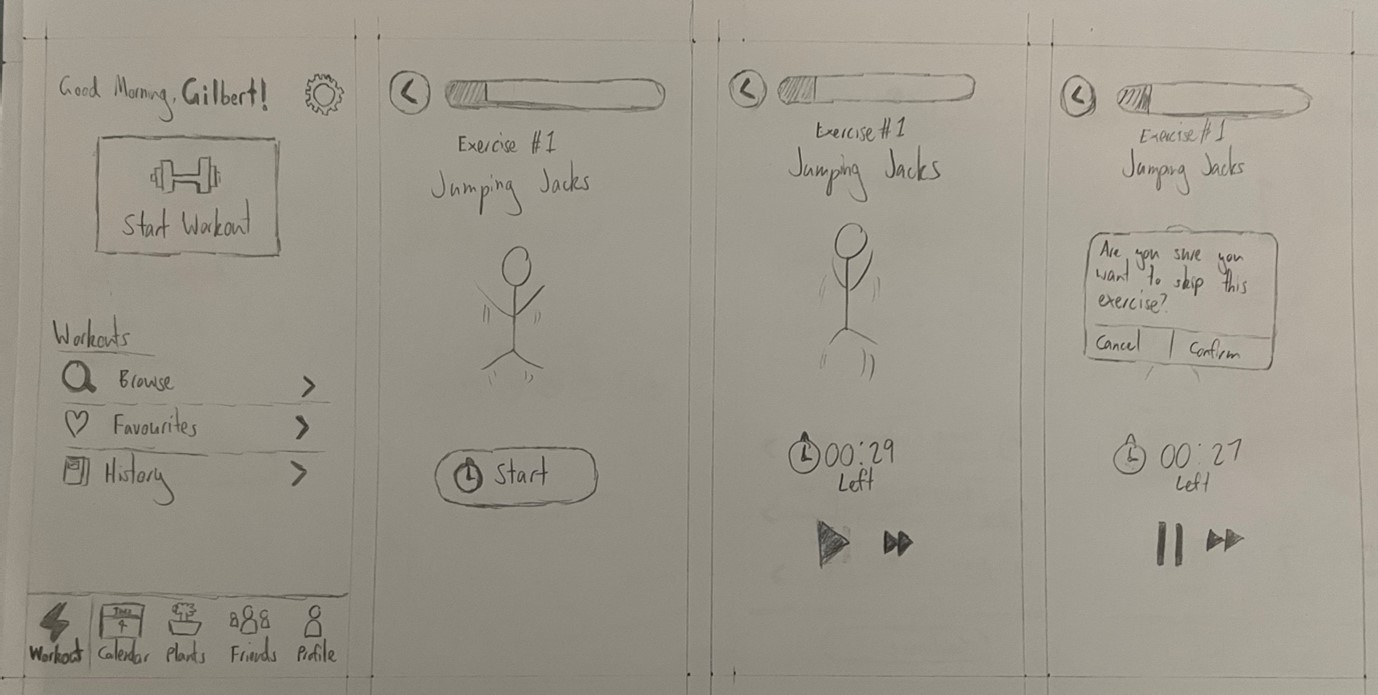 Good Morning, Gilbert!
Start Workout
Workouts
Browse
Favourites
History
Workout
THU
4
Calendar
Plants
Friends
Profile
Exercise #1
Jumping Jacks
Start
Exercise #1
Jumping Jacks
00:29
Left
Exercise #1
Jumping Jacks
Are you sure you
want to skip this
exercise?
Cancel
Confirm
00:27
Left